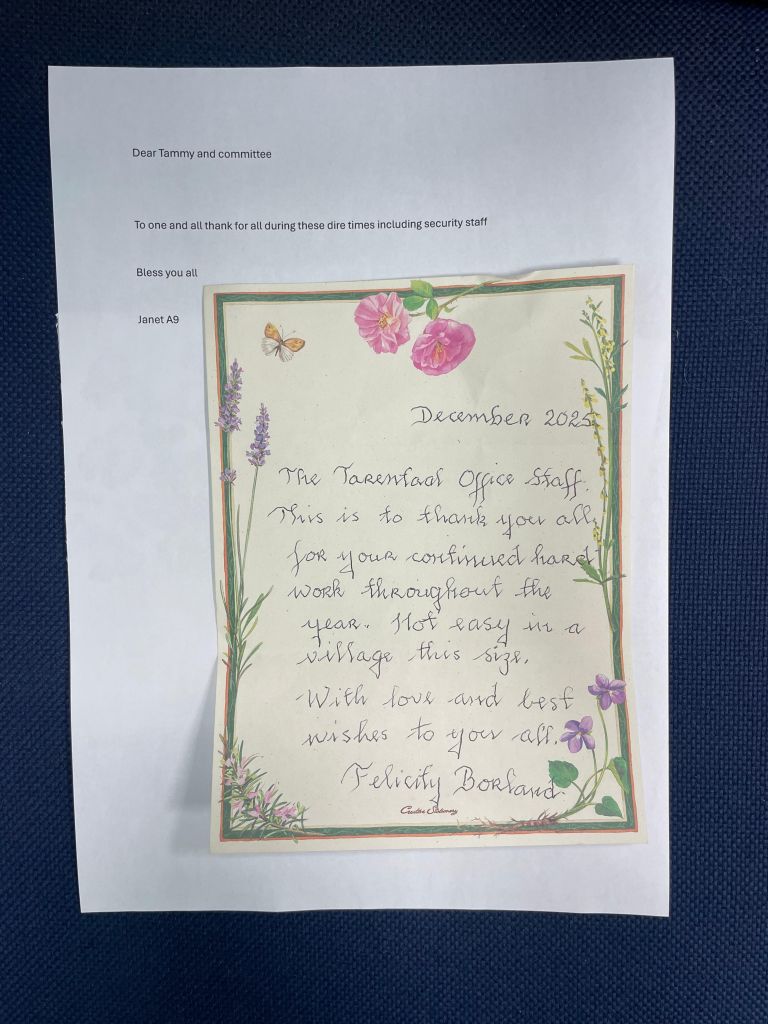 Dear Tammy and committee
To one and all thank for all during these dire times including security staff
Bless you all
Janet A9
December 2025
The Tarentaal Office Staff.
This is to thank you all
for your continued hard
work throughout the
year. Not easy in a
village this size.
With love and best
wishes to you all.
Felicity Borland.
Creative Stationery